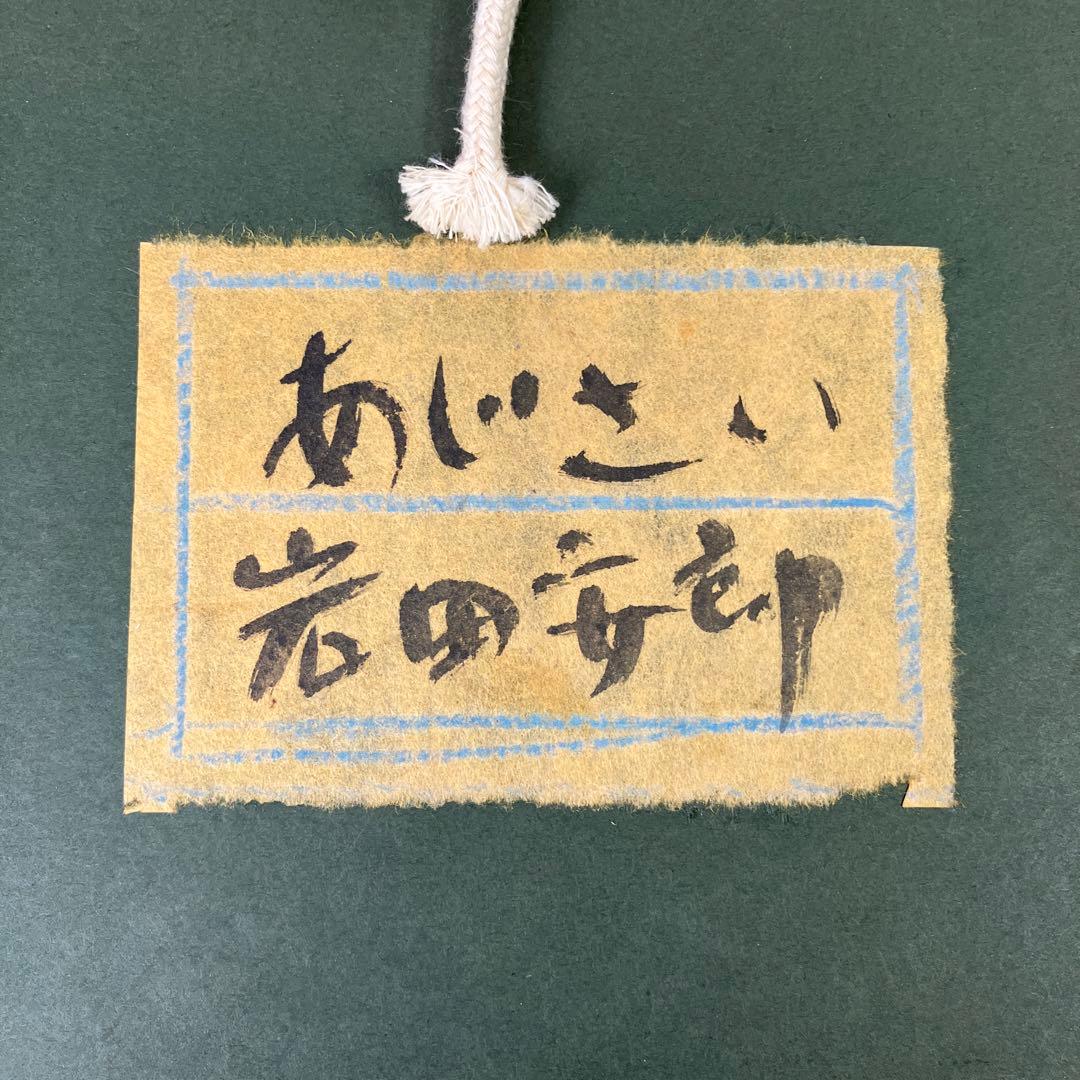 あじさい
岩田安郎